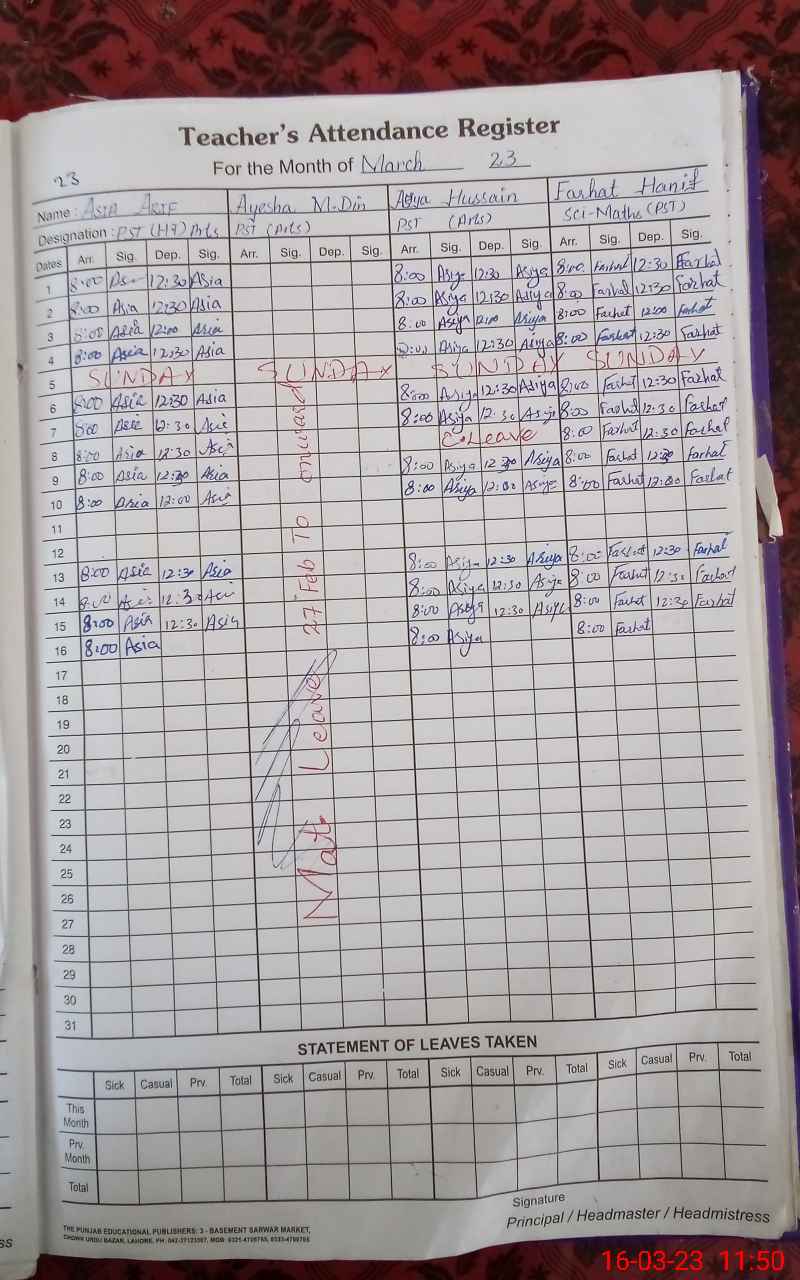 Teacher's Attendance Register
For the Month of March 23
23
Name : ASIA ARIF Ayesha M.Din Asiya Hussain Farhat Hanif
Designation : PST (HT) Arts PST (Arts) PST (Arts) Sci-Maths (PST)
Dates Arr. Sig. Dep. Sig. Arr. Sig. Dep. Sig. Arr. Sig. Dep. Sig. Arr. Sig. Dep. Sig.
1 8:00 12:30 Asia 8:00 Asiya 12:30 Asiya 8:00 Farhat 12:30 Farhat
2 8:00 Asia 12:30 Asia 8:00 Asiya 12:30 Asiya 8:00 Farhat 12:30 Farhat
3 8:00 Asia 12:00 Asia 8:00 Asiya 12:00 Asiya 8:00 Farhat 12:00 Farhat
4 8:00 Asia 12:30 Asia 8:00 Asiya 12:30 Asiya 8:00 Farhat 12:30 Farhat
5 SUNDAY SUNDAY SUNDAY SUNDAY
6 8:00 Asia 12:30 Asia 8:00 Asiya 12:30 Asiya 8:00 Farhat 12:30 Farhat
7 8:00 Asia 12:30 Asia 8:00 Asiya 12:30 Asiya 8:00 Farhat 12:30 Farhat
8 8:00 Asia 12:30 Asia C-Leave 8:00 Farhat 12:30 Farhat
9 8:00 Asia 12:30 Asia 8:00 Asiya 12:30 Asiya 8:00 Farhat 12:30 Farhat
10 8:00 Asia 12:00 Asia 8:00 Asiya 12:00 Asiya 8:00 Farhat 12:00 Farhat
11
12
13 8:00 Asia 12:30 Asia 8:00 Asiya 12:30 Asiya 8:00 Farhat 12:30 Farhat
14 8:00 Asia 12:30 Asia 8:00 Asiya 12:30 Asiya 8:00 Farhat 12:30 Farhat
15 8:00 Asia 12:30 Asia 8:00 Asiya 12:30 Asiya 8:00 Farhat 12:30 Farhat
16 8:00 Asia 8:00 Asiya 8:00 Farhat
17
18
19
20
21
22
23
24
25
26
27
28
29
30
31
Mat. Leave 27 Feb To onward
STATEMENT OF LEAVES TAKEN
Sick Casual Prv. Total Sick Casual Prv. Total Sick Casual Prv. Total Sick Casual Prv. Total
This Month
Prv. Month
Total
Signature
Principal / Headmaster / Headmistress
THE PUNJAB EDUCATIONAL PUBLISHERS: 3 - BASEMENT SARWAR MARKET,
CHOWK URDU BAZAR, LAHORE. PH:
ss
16-03-23 11:50